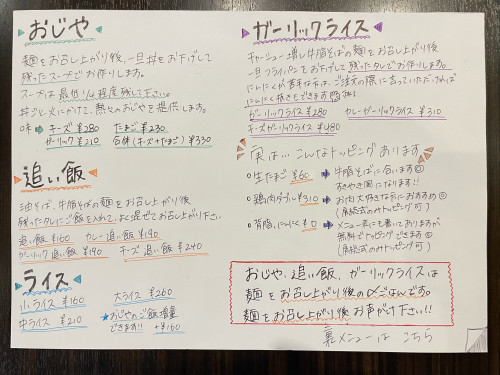 おじや
麺をお召し上がり後、一旦丼をお下げして
残ったスープでお作りします。
スープは最低1/4程度残して下さい。
丼ごと火にかけて、熱々のおじやを提供します。
味 チーズ ¥280 たまご ¥230
ガーリック ¥210 合体(チーズ+たまご) ¥330
追い飯
油そば、牛脂そばの麺をお召し上がり後
残ったタレにご飯を入れて、よく混ぜてお召し上がり下さい。
追い飯 ¥160 カレー追い飯 ¥190
ガーリック追い飯 ¥190 チーズ追い飯 ¥240
ライス
小ライス ¥160 大ライス ¥260
中ライス ¥210 ★おじやのご飯増量
できます!! +¥160
ガーリックライス
チャーシュー増し牛脂そばの麺をお召し上がり後
一旦フライパンをお下げして残ったタレでお作りします。
にんにくが苦手な方は、ご注文の際に言っていただければ
にんにく抜きもできます
ガーリックライス ¥280 カレーガーリックライス ¥310
チーズガーリックライス ¥480
実は…こんなトッピングあります
○生たまご ¥60 牛脂そばに合います
すきやき風になります!!
○鶏肉ダブル ¥310 お肉大好きな方におすすめ
○背脂、にんにく ¥0 メニュー表にも書いてありますが
無料でトッピングできます
おじや、追い飯、ガーリックライスは
麺をお召し上がり後の〆ごはんです。
麺をお召し上がり後お声がけ下さい!!
裏メニューは こちら